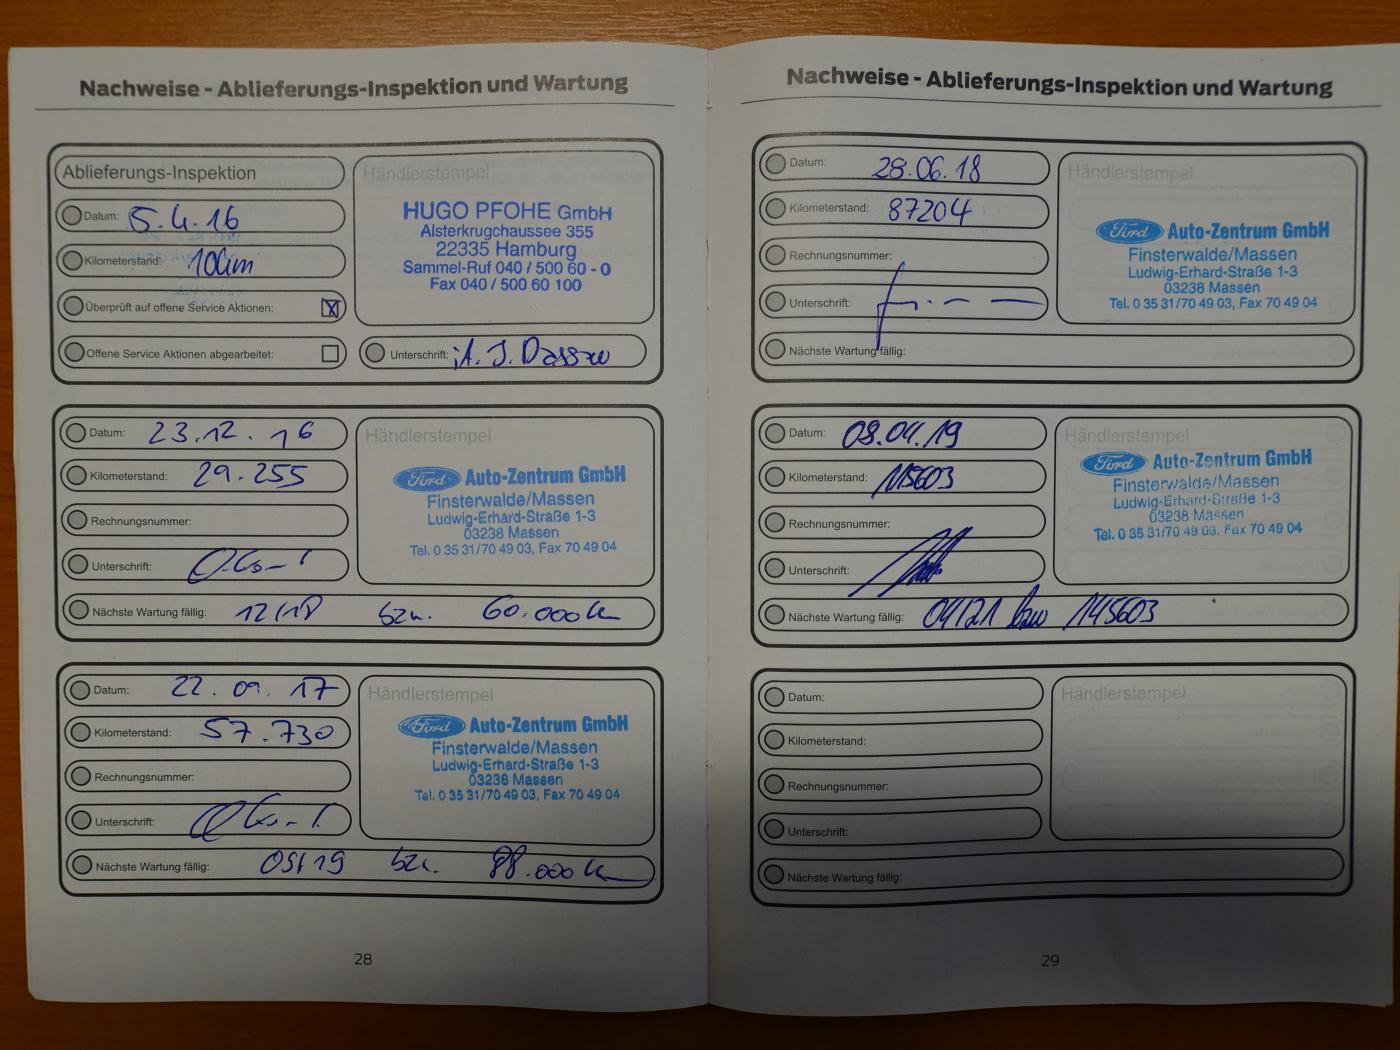 Nachweise - Ablieferungs-Inspektion und Wartung
Ablieferungs-Inspektion
Datum: 5.4.16
Kilometerstand: 10km
Überprüft auf offene Service Aktionen: X
Offene Service Aktionen abgearbeitet:
Händlerstempel
HUGO PFOHE GmbH
Alsterkrugchaussee 355
22335 Hamburg
Sammel-Ruf 040 / 500 60 - 0
Fax 040 / 500 60 100
Unterschrift:
Datum: 23.12.16
Kilometerstand: 29.255
Rechnungsnummer:
Unterschrift:
Nächste Wartung fällig: 12/18 bzw. 60.000 km
Händlerstempel
Ford Auto-Zentrum GmbH
Finsterwalde/Massen
Ludwig-Erhard-Straße 1-3
03238 Massen
Tel. 0 35 31/70 49 03, Fax 70 49 04
Datum: 22.09.17
Kilometerstand: 57.730
Rechnungsnummer:
Unterschrift:
Nächste Wartung fällig: 09/19 bzw. 88.000 km
Händlerstempel
Ford Auto-Zentrum GmbH
Finsterwalde/Massen
Ludwig-Erhard-Straße 1-3
03238 Massen
Tel. 0 35 31/70 49 03, Fax 70 49 04
28
Nachweise - Ablieferungs-Inspektion und Wartung
Datum: 28.06.18
Kilometerstand: 87204
Rechnungsnummer:
Unterschrift:
Nächste Wartung fällig:
Händlerstempel
Ford Auto-Zentrum GmbH
Finsterwalde/Massen
Ludwig-Erhard-Straße 1-3
03238 Massen
Tel. 0 35 31/70 49 03, Fax 70 49 04
Datum: 08.04.19
Kilometerstand: 115603
Rechnungsnummer:
Unterschrift:
Nächste Wartung fällig: 04/21 bzw 145603
Händlerstempel
Ford Auto-Zentrum GmbH
Finsterwalde/Massen
Ludwig-Erhard-Straße 1-3
03238 Massen
Tel. 0 35 31/70 49 03, Fax 70 49 04
Datum:
Kilometerstand:
Rechnungsnummer:
Unterschrift:
Nächste Wartung fällig:
Händlerstempel
29